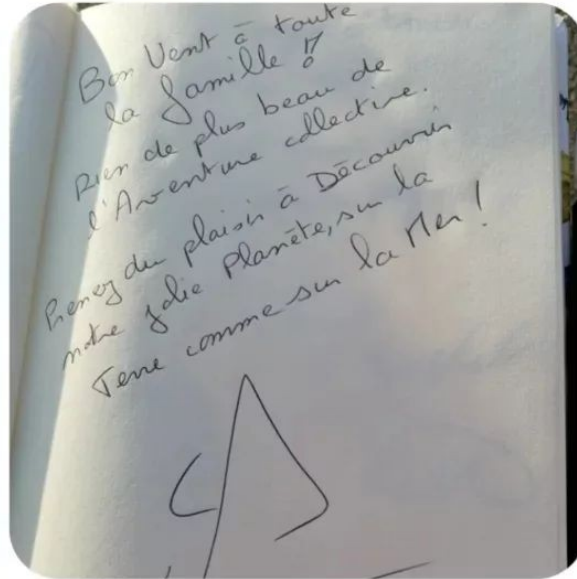 Bon Vent à toute
la famille !
Rien de plus beau de
l'Aventure collective.
Prenez du plaisir à Découvrir
notre jolie Planète, sur la
Terre comme sur la Mer !